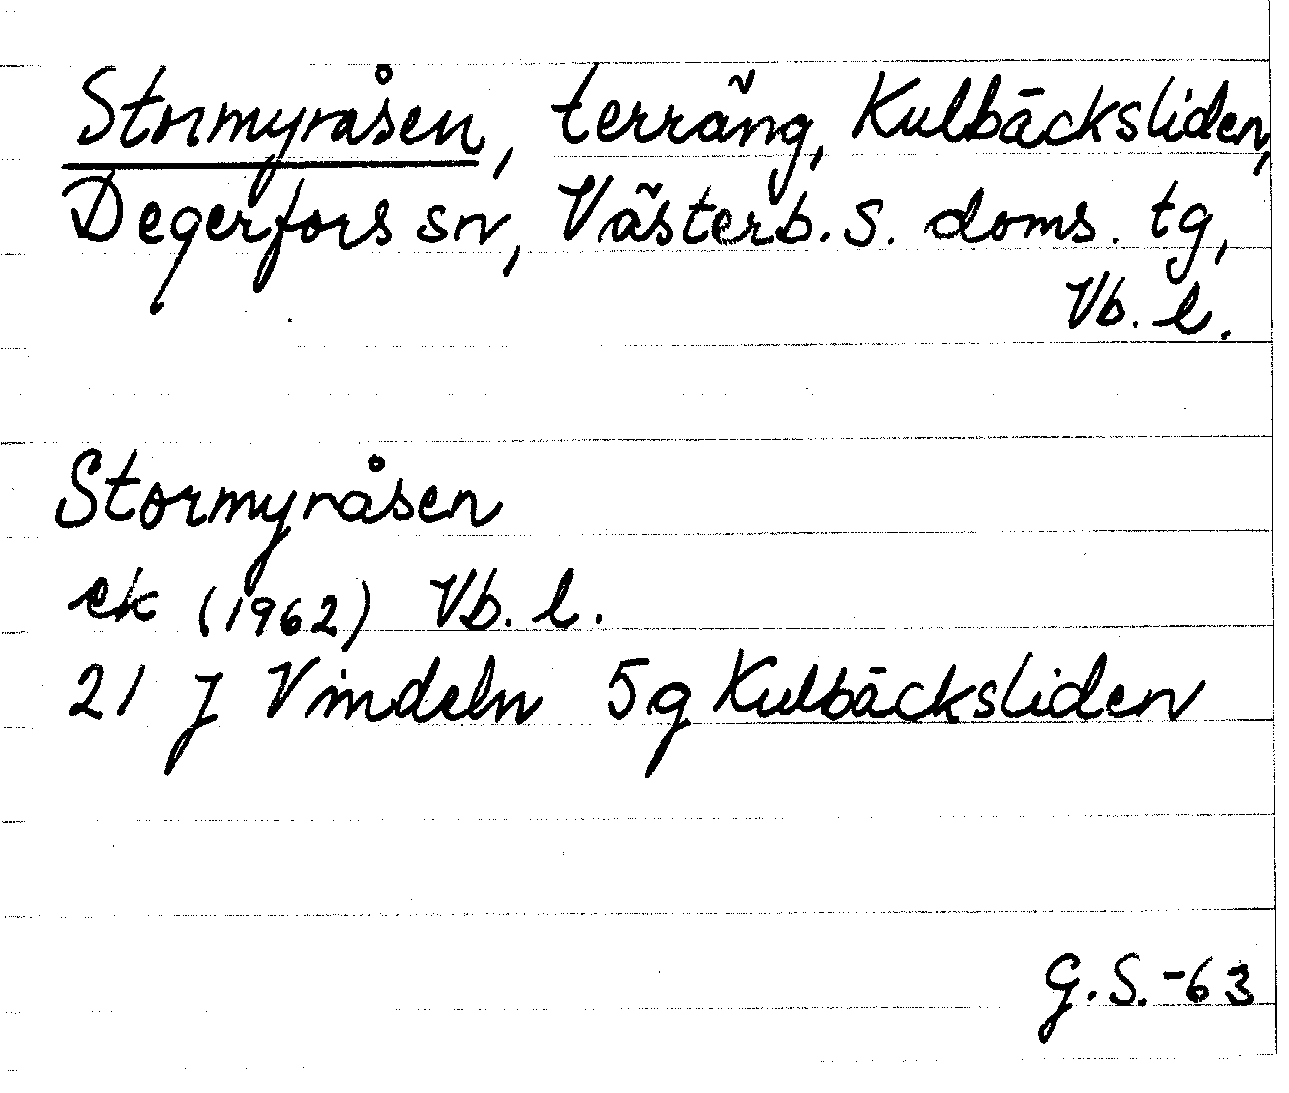 Stormyråsen, terräng, Kulbäcksliden,
Degerfors sn, Västerb. s. doms. tg,
Vb. l.
Stormyråsen
ek (1962) Vb. l.
21 J Vindeln 5g Kulbäcksliden
G.S.-63